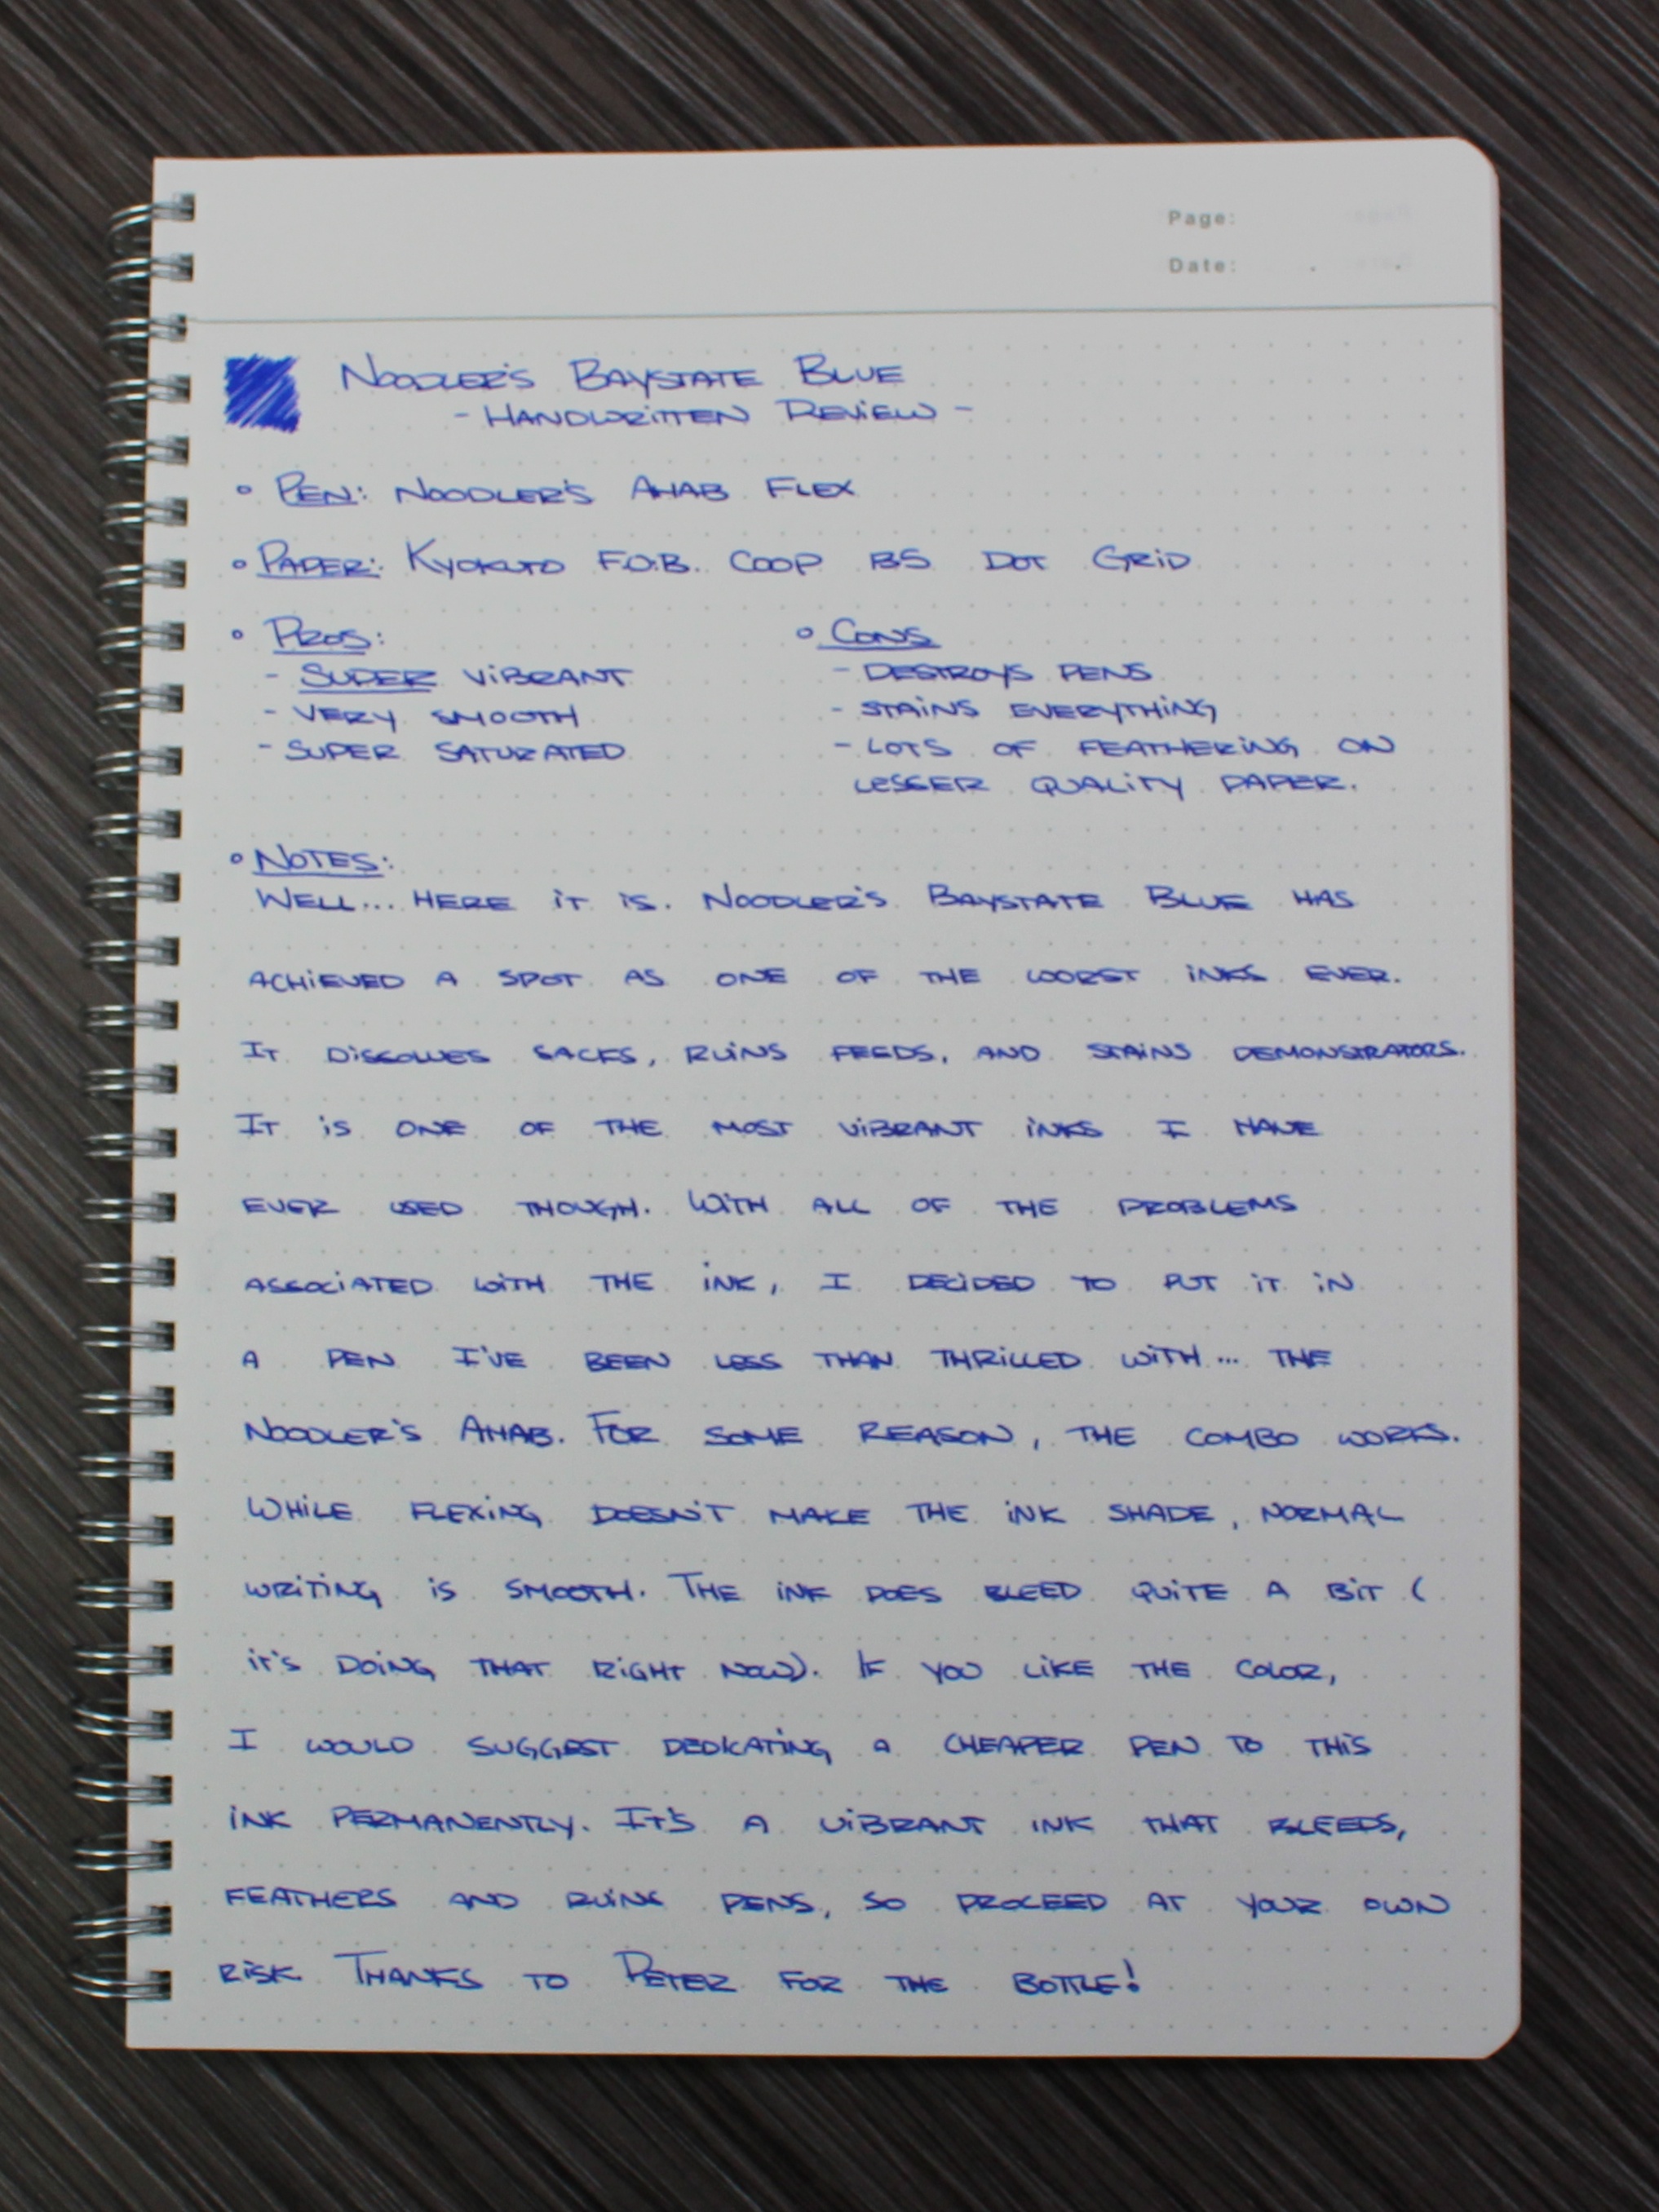 Page:
Date: . .
NOODLER'S BAYSTATE BLUE
- HANDWRITTEN REVIEW -
° PEN: NOODLER'S AHAB FLEX
° PAPER: KYOKUTO F.O.B. COOP B5 DOT GRID
° PROS:
- SUPER VIBRANT
- VERY SMOOTH
- SUPER SATURATED
° CONS
- DESTROYS PENS
- STAINS EVERYTHING
- LOTS OF FEATHERING ON
LESSER QUALITY PAPER.
° NOTES:
WELL... HERE IT IS. NOODLER'S BAYSTATE BLUE HAS
ACHIEVED A SPOT AS ONE OF THE WORST INKS EVER.
IT DISSOLVES SACKS, RUINS FEEDS, AND STAINS DEMONSTRATORS.
IT IS ONE OF THE MOST VIBRANT INKS I HAVE
EVER USED THOUGH. WITH ALL OF THE PROBLEMS
ASSOCIATED WITH THE INK, I DECIDED TO PUT IT IN
A PEN I'VE BEEN LESS THAN THRILLED WITH... THE
NOODLER'S AHAB. FOR SOME REASON, THE COMBO WORKS.
WHILE FLEXING DOESN'T MAKE THE INK SHADE, NORMAL
WRITING IS SMOOTH. THE INK DOES BLEED QUITE A BIT (
IT'S DOING THAT RIGHT NOW). IF YOU LIKE THE COLOR,
I WOULD SUGGEST DEDICATING A CHEAPER PEN TO THIS
INK PERMANENTLY. IT'S A VIBRANT INK THAT BLEEDS,
FEATHERS AND RUINS PENS, SO PROCEED AT YOUR OWN
RISK. THANKS TO PETER FOR THE BOTTLE!